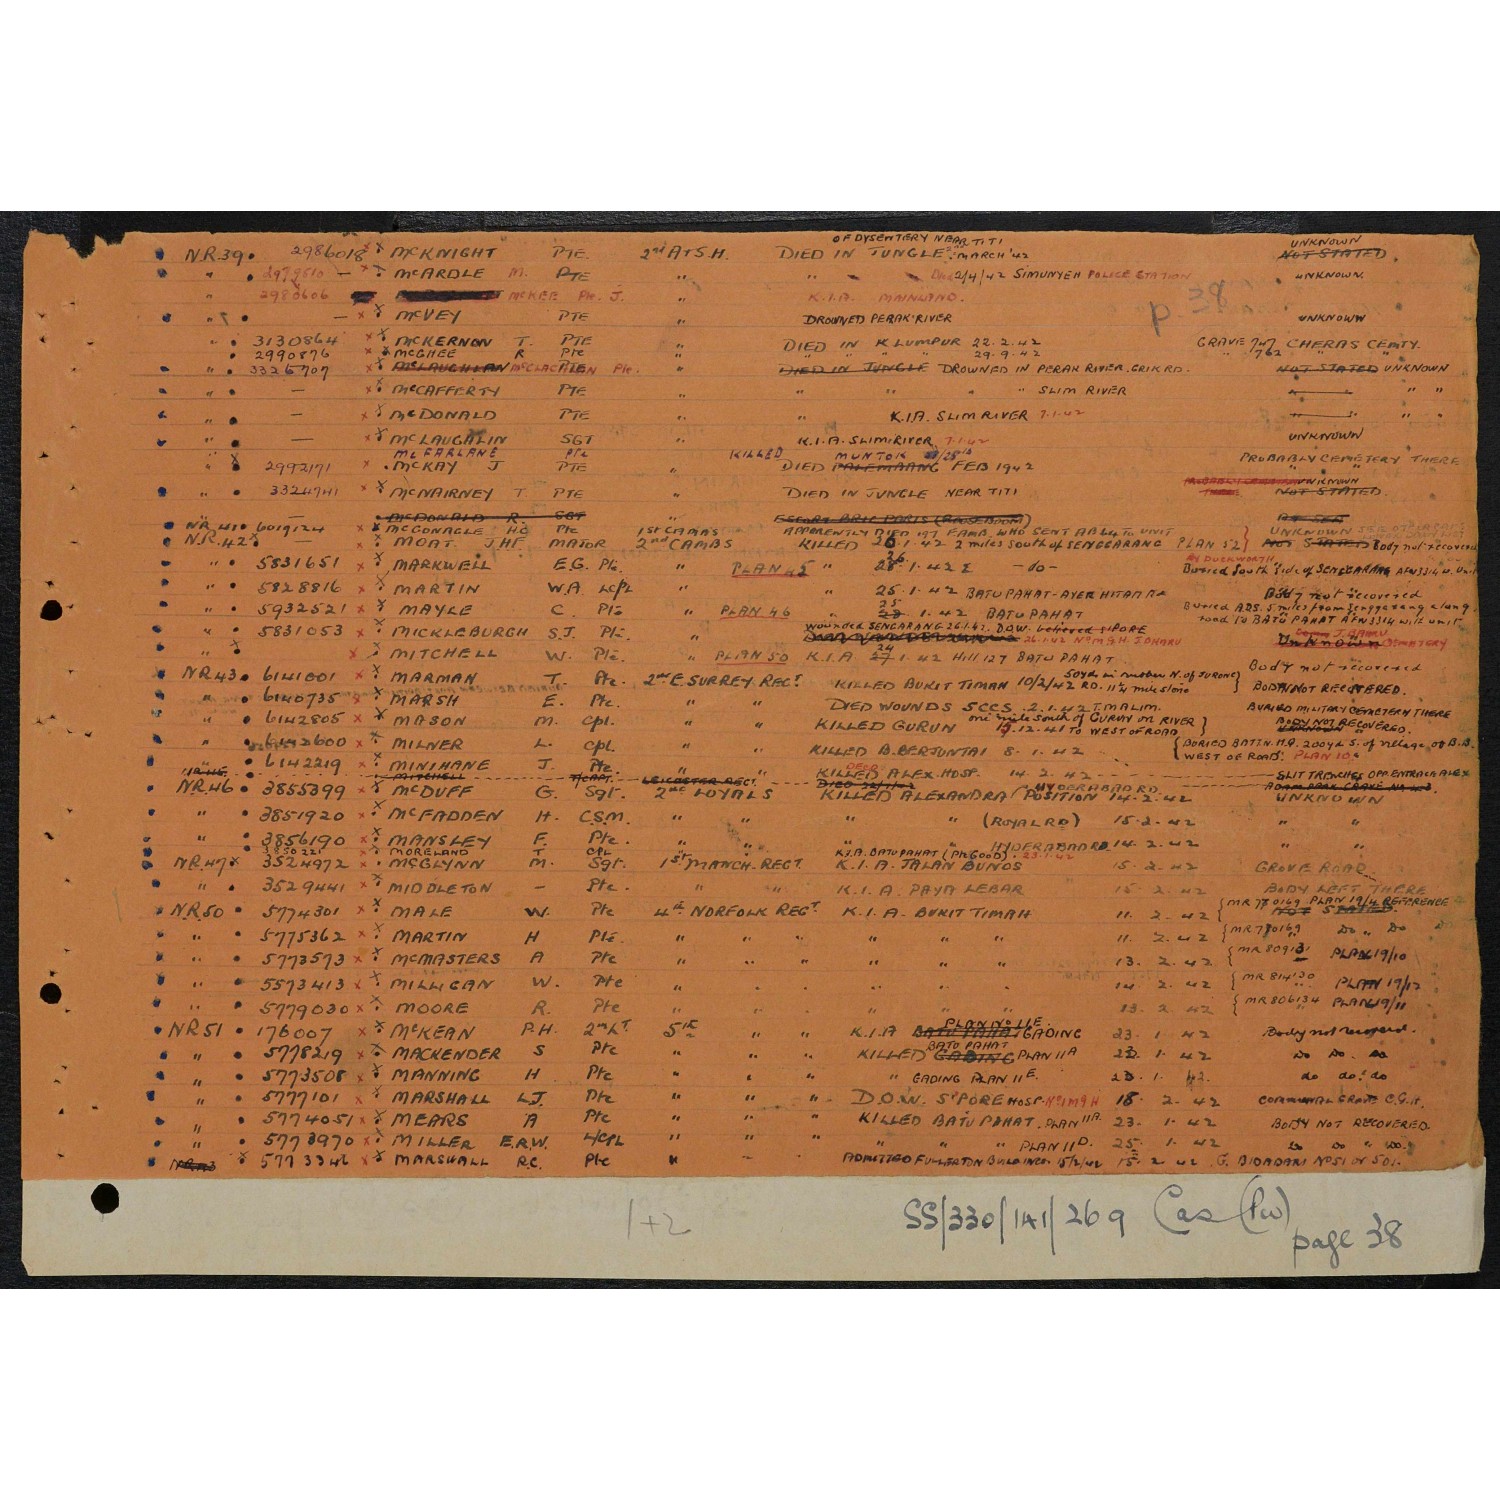 OF DYSENTERY NEAR TITI UNKNOWN
N.R.39. 2986018 McKNIGHT PTE. 2nd A & S.H. DIED IN JUNGLE MARCH '42 NOT STATED.
" 2979510 — McARDLE M. PTE " " " 2/4/42 SIMUNYEH POLICE STATION UNKNOWN.
" 2980606 McKEE Pte. J. " K.I.A. MAINLAND.
" — McVEY PTE " DROWNED PERAK RIVER UNKNOWN
3130864 McKERNON T. PTE " DIED IN K LUMPUR 22.2.42 GRAVE 747 CHERAS CEMTY.
2990876 McGHEE R Pte " " " 29.9.42 " 762 " "
" 3326707 McLAUGHLAN McCLACHLAN Pte. PTE " DIED IN JUNGLE DROWNED IN PERAK RIVER. GRIK RD. NOT STATED UNKNOWN
— McCAFFERTY PTE " " " " SLIM RIVER " " "
" — McDONALD PTE " K.I.A. SLIM RIVER 7.1.42 " " "
" — McLAUGHLIN SGT " K.I.A. SLIM RIVER 7.1.42 UNKNOWN
McFARLANE Pte KILLED MUNTOK
" 2992171 McKAY J PTE " DIED PALEMBANG FEB 1942 PROBABLY CEMETERY THERE
" 3324741 McNAIRNEY T PTE " DIED IN JUNGLE NEAR TITI UNKNOWN NOT STATED.
" — McDONALD R SGT " ESCORT BRIG PARIS (ROOSEBOOM) AT SEA
NR.41. 6019124 McGONAGLE HC Pte 1st CAMBS APPARENTLY DIED 197 F AMB. WHO SENT AB64 TO UNIT UNKNOWN
N.R.42 — MOAT. J.HF. MAJOR 2nd CAMBS KILLED 26.1.42 2 miles South of SENGGARANG PLAN 52 NOT STATED Body not recovered
" 5831651 MARKWELL E.G. Pte. " PLAN 45 " 26 28.1.42 — do — BY DUCKWORTH Buried South Side of SENGGARANG AFW3314 w. Unit
" 5828816 MARTIN W.A. L/cpl " " 25.1.42 BATU PAHAT - AYER HITAM Rd Body not recovered
" 5932521 MAYLE C. Pte " PLAN 46 " 25 23.1.42 BATU PAHAT Buried ADS. 5 miles from Senggarang along road to BATU PAHAT AFW3314 with unit
" 5831053 MICKLEBURGH S.J. Pte. " Wounded SENGARANG 26.1.42. D.O.W. believed S'PORE 26.1.42 UnKnown CEMETERY
" MITCHELL W. Pte. " PLAN 50 K.I.A. 24 27.1.42 Hill 127 BATU PAHAT Body not recovered
NR43. 6141001 MARMAN T. Pte. 2nd E. SURREY REGT. KILLED BUKIT TIMAH 10/2/42 RD. 11¼ milestone BODY NOT RECOVERED.
" 6140735 MARSH E. Pte. " " DIED WOUNDS 5CCS. 2.1.42 T. MALIM. BURIED MILITARY CEMETERY THERE
" 6142805 MASON M. Cpl. " " KILLED GURUN one mile South of GURUN on RIVER 12.41 TO WEST OF ROAD BODY NOT RECOVERED.
" 6142600 MILNER L. Cpl. " " KILLED B. BERJUNTAI 8.1.42 BURIED BATTN. H.Q. 200yd S. of village of B.B. WEST OF ROAD. PLAN 10
" 6142219 MINIHANE J. Pte. " " KILLED ALEX. HOSP. 14.2.42 SLIT TRENCHES OPP. ENTRANCE ALEX
NR.45. MITCHELL T/CAPT. LEICESTER REGT. DIED
NR.46 3855399 McDUFF G. Sgt. 2nd LOYALS KILLED ALEXANDRA POSITION HYDERABAD RD 14.2.42 UNKNOWN
" 3851920 McFADDEN H. C.S.M. " " " " (ROYAL RD) 15.2.42 " "
" 3856190 MANSLEY F. Pte. " " " HYDERABAD RD 14.2.42 " "
3850221 MORELAND T CPL K.I.A. BATU PAHAT (Pte GOOD). 23.1.42
NR.47 3524972 McGLYNN M. Sgt. 1st MANCH. REGT. K.I.A. JALAN BUNOS 15.2.42 GROVE ROAD
" 3529441 MIDDLETON — Pte. " " K.I.A. PAYA LEBAR 15.2.42 BODY LEFT THERE
NR.50 5774301 MALE W. Pte 4th NORFOLK REGT. K.I.A. BUKIT TIMAH 11.2.42 MR 770169 PLAN 19/4 REFERENCE NOT STATED.
" 5775362 MARTIN H Pte. " " " " " " 11.2.42 MR 770169 Do " Do
" 5773573 McMASTERS A Pte " " " " " " 13.2.42 MR 809131 PLAN 19/10
" 5573413 MILLIGAN W. Pte " " " " " " 14.2.42 MR 814130 PLAN 19/12
" 5779030 MOORE R. Pte " " " " " " 13.2.42 MR 806134 PLAN 19/11
NR51 176007 McKEAN P.H. 2nd Lt. 5th " " K.I.A BATU PAHAT PLAN No 11E. GADING 23.1.42 Body not recovered.
" 5778219 MACKENDER S Pte " " " KILLED GADING BATU PAHAT PLAN 11A 23.1.42 Do Do. Do
" 5773508 MANNING H Pte " " " " GADING PLAN 11E. 23.1.42. do do. do
" 5777101 MARSHALL L.J. Pte " " " D.O.W. S'PORE HOSP. No 1 M G H 18.2.42 COMMUNAL GRAVE C.G.H.
" 5774051 MEARS A Pte " " " KILLED BATU PAHAT. PLAN 11A. 23.1.42 BODY NOT RECOVERED
" 5773970 MILLER E.R.W. L/CPL " " " " " PLAN 11D. 25.1.42 Do Do " Do.
NR 53 5773346 MARSHALL R.C. Pte " " ADMITTED FULLERTON BUILDINGS 15/2/42 15.2.42 G. BIDADARI No 51 or 501.
1+2
SS/330/141/269 Cas (Pw)
page 38